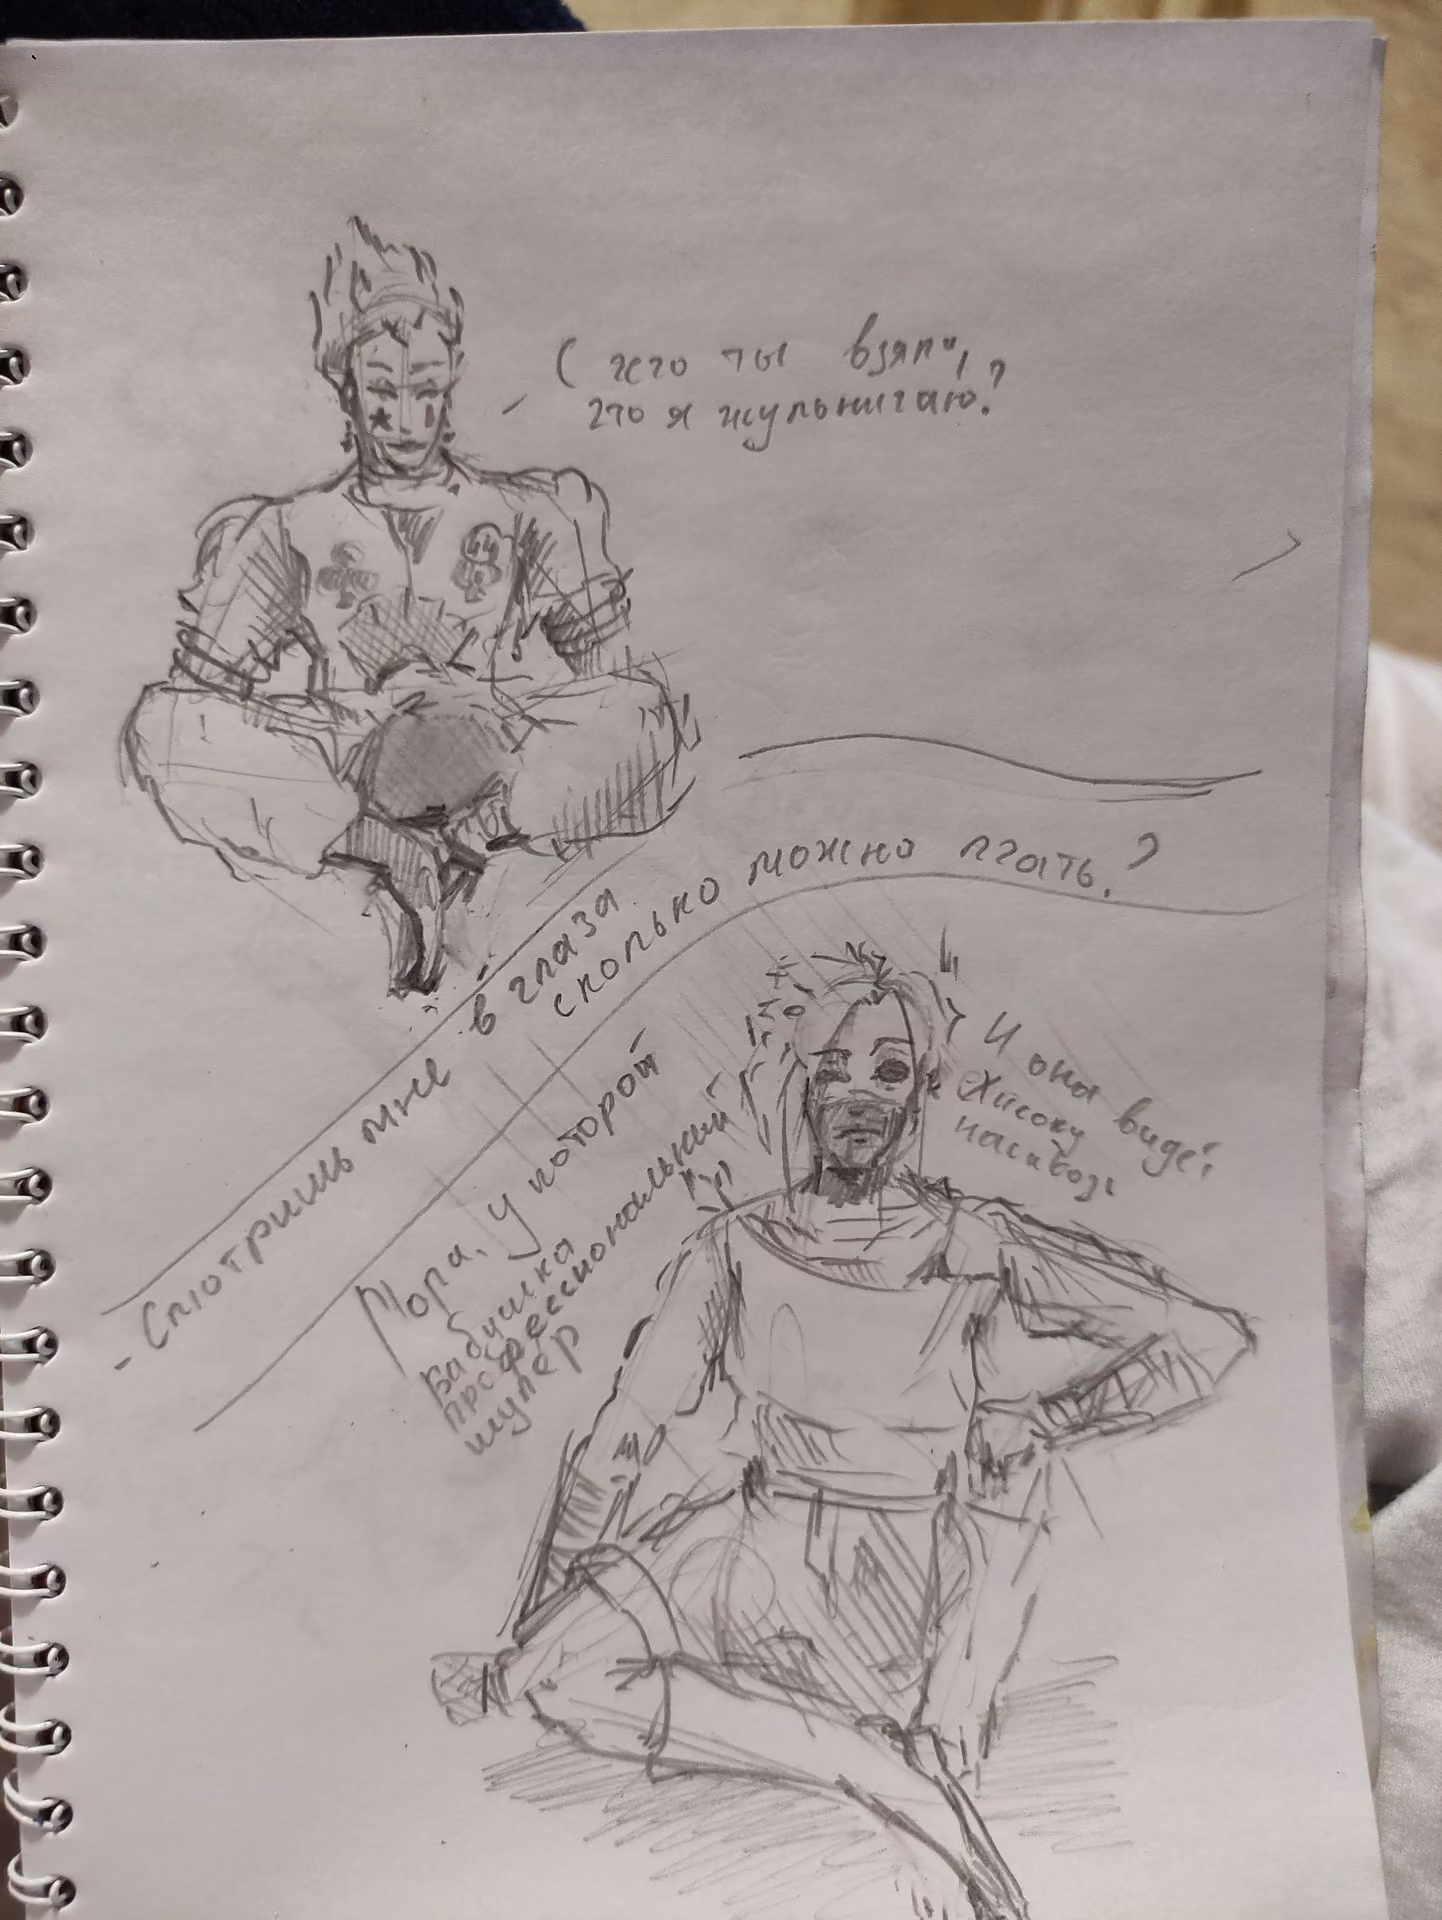 С чего ты взял,
что я жульничаю?
- Смотришь мне в глаза
сколько можно лгать?
Мора, у которой
бабушка
профессиональный
шулер
И она видет
Хисоку
насквозь